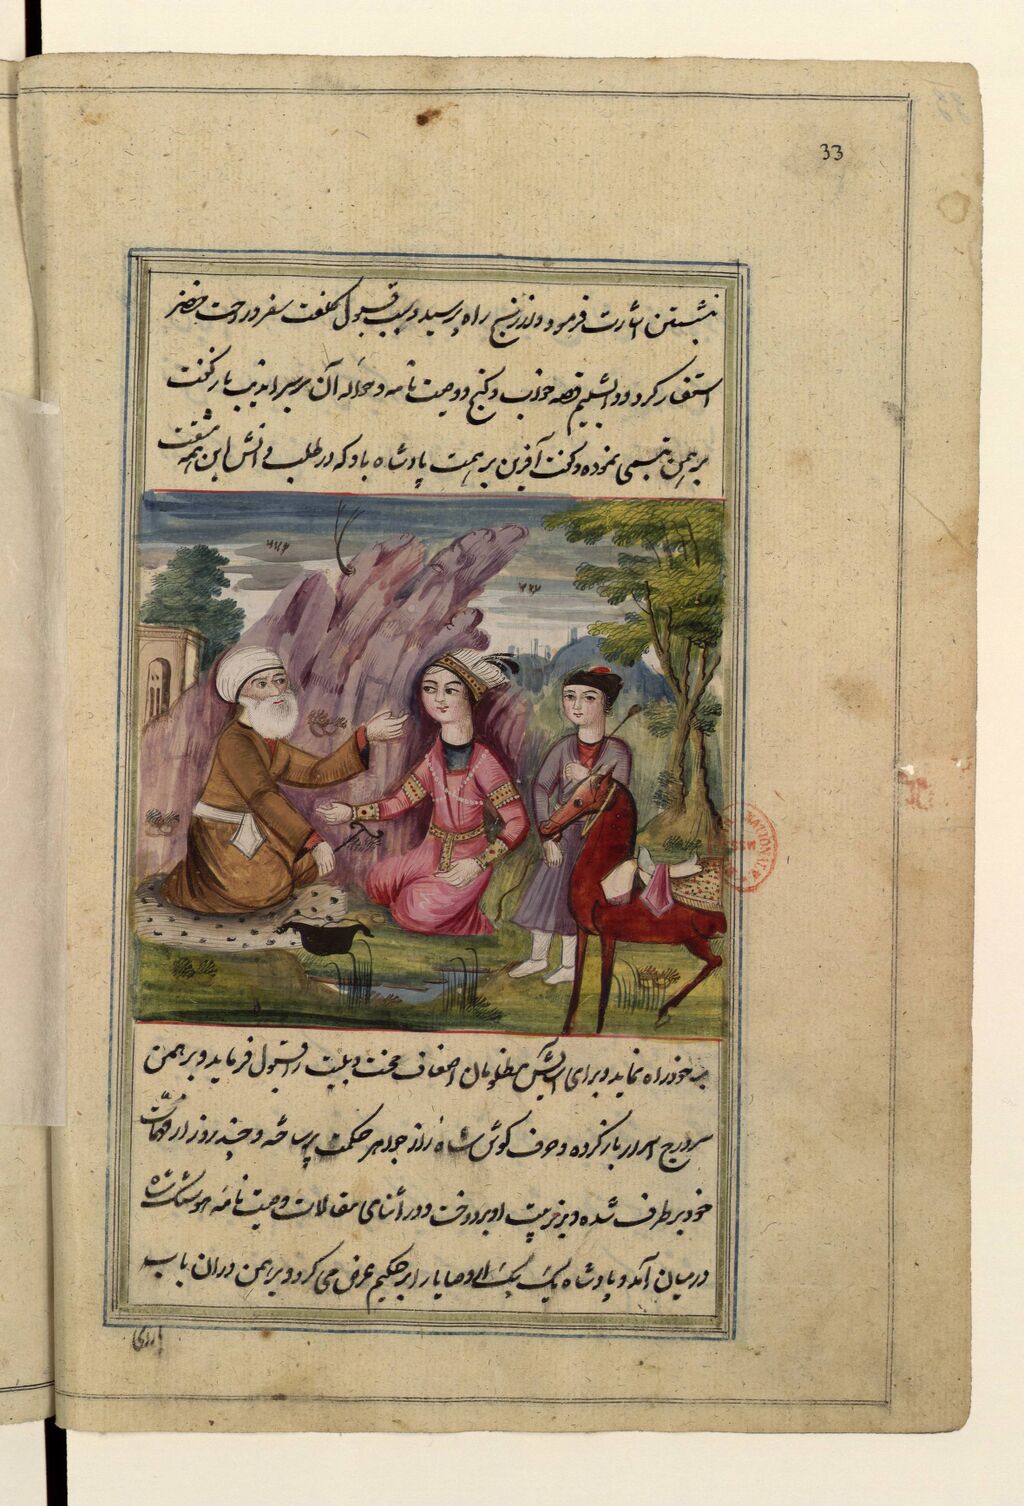 33
نشستن اشارت فرمود و از رنج راه پرسید و سبب قبول کلفت سفر و رحمت حضر
استفسار کرد و دابشلیم قصه خواب و گنج و وصیت نامه و حواله آن بسراندیب باز گفت
برهمن تبسمی نموده و گفت آفرین بر همت پادشاه باد که در طلب دانش این همه مشقت
بخود راه نماید و برای آسایش مظلومان اصناف محنت و بلیت را قبول فرماید و برهمن
سر درج اسرار باز کرده و صدف گوش شاه را از جواهر حکمت پر ساخته و چند روز از مهمات
خود بر طرف شده و بر تربیت او پرداخت و در اثنای مقالات وصیت نامه هوشنگ شاه
در میان آمد و پادشاه یک یک از وصایا را بر حکیم عرض می کرد و برهمن در آن باب